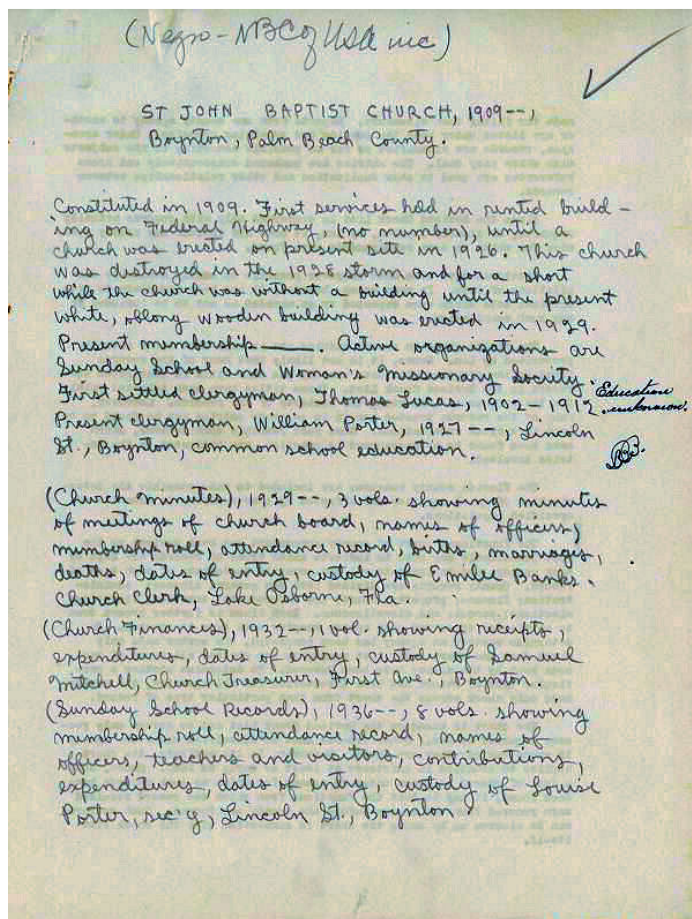 (Negro - NBC of USA inc)
ST JOHN BAPTIST CHURCH, 1909--,
Boynton, Palm Beach County.
Constituted in 1909. First services held in rented build-
ing on Federal Highway, (no number), until a
church was erected on present site in 1926. This church
was destroyed in the 1928 storm and for a short
while the church was without a building until the present
white, oblong wooden building was erected in 1929.
Present membership ____. Active organizations are
Sunday School and Woman's Missionary Society.
First settled clergyman, Thomas Lucas, 1902-1912. Education unknown.
Present clergyman, William Porter, 1927--, Lincoln
St., Boynton, common school education.
(Church Minutes), 1929--, 3 vols. showing minutes
of meetings of church board, names of officers,
membership roll, attendance record, births, marriages,
deaths, dates of entry, custody of Emilee Banks.
Church Clerk, Lake Osborne, Fla.
(Church Finances), 1932--, 1 vol. showing receipts,
expenditures, dates of entry, custody of Samuel
Mitchell, Church Treasurer, First Ave., Boynton.
(Sunday School Records), 1936--, 8 vols. showing
membership roll, attendance record, names of
officers, teachers and visitors, contributions,
expenditures, dates of entry, custody of Louise
Porter, sec'y, Lincoln St., Boynton.